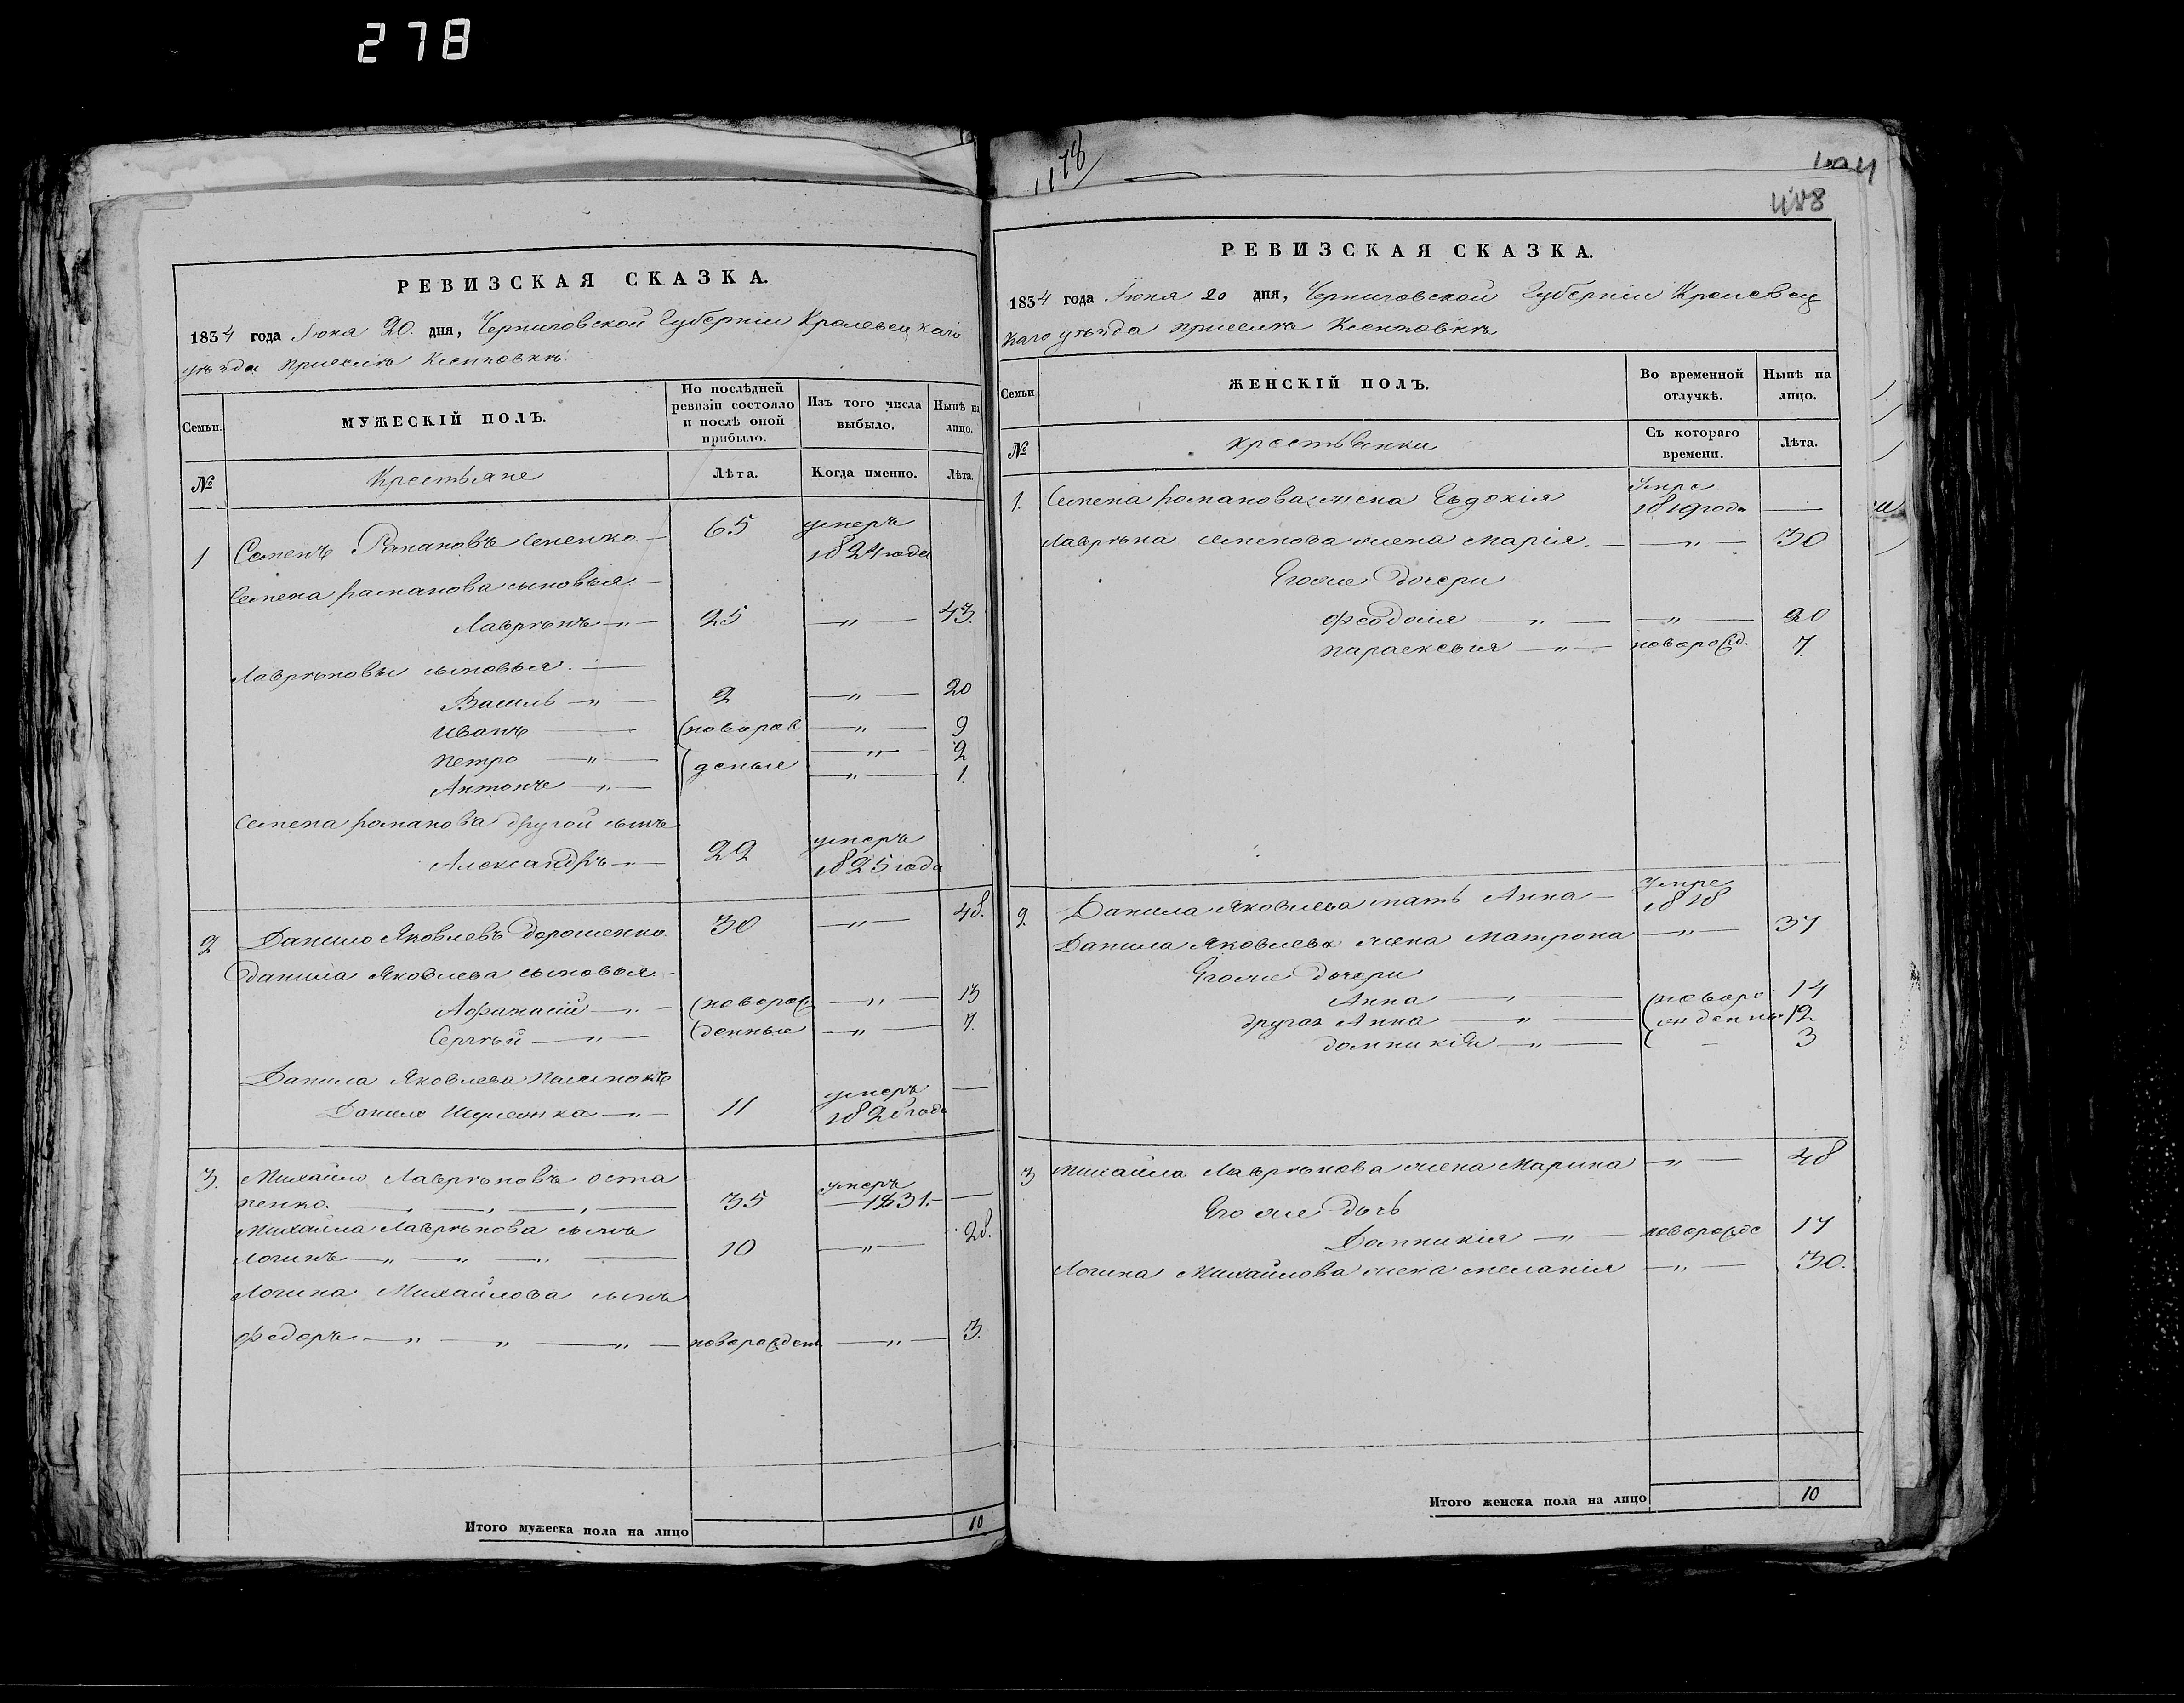 278
РЕВИЗСКАЯ СКАЗКА.
1834 года Іюня 20. дня, Черниговской Губерніи Кролевецкаго
уѣзда приселкѣ
Семьи.
МУЖЕСКІЙ ПОЛЪ.
По послѣдней ревизіи состояло и послѣ оной прибыло.
Изъ того числа выбыло.
Нынѣ на лицо.
№
Крестьяне
Лѣта.
Когда именно.
Лѣта.
1 Семенъ Романовъ 65 умеръ 1824 года
Семена романова сыновья.
Лаврѣнъ — „ — 25 — „ — 43.
Лаврѣновы сыновья. —
Василь — „ — 2 — „ — 20
Иванъ — (новорож — „ — 9
Петро — „ — (деныя — „ — 2
Антонъ — „ — — „ — 1.
Семена романова другой сынъ
Александръ — „ — 22 умеръ 1825 года
2 Данило Яковлевъ Дорошенко. 30 — „ — 48.
Данила Яковлева сыновья —
Афанасій — „ — (новорож — „ — 13
Сергѣй — „ — (денныя — „ — 7.
Данила Яковлева пасынокъ
Данило — „ — 11 умеръ —
3. Михайло Лаврѣновъ Оста
пенко. 35 умеръ — 1831. —
Михайла Лаврѣнова сынъ
Логинъ — „ — „ — „ — 10 — „ — 28.
Логина Михайлова сынъ
Федоръ — „ — „ — „ — новорожден. — „ — 3.
Итого мужеска пола на лицо 10
1178
488
РЕВИЗСКАЯ СКАЗКА.
1834 года Іюня 20 дня, Черниговской Губерніи Кролевец
каго уѣзда приселкѣ
Семьи
ЖЕНСКІЙ ПОЛЪ.
Во временной отлучкѣ.
Нынѣ на лицо.
№
крестьянки
Съ котораго времени.
Лѣта.
1. Семена романова жена Евдокія Умре 1819 года —
Лаврѣна семенова жена Марія. — „ — 30
Егоже дочери
Феодосія — „ — — „ — 20
Параскевія — „ — новорожд. 7.
2 Данила Яковлева мать Анна — Умре 1818
Данила Яковлева жена Матрона — „ — 37
Егоже дочери
Анна „ — (новоро 14
другая Анна — „ — (жденныя 12
Домникія — „ — ( — 3
3 Михайла Лаврѣнова жена Марина — „ — 48
Его же дочь
Домникія — „ — новорожде 17
Логина Михайлова жена Меланія — „ — 30.
Итого женска пола на лицо 10